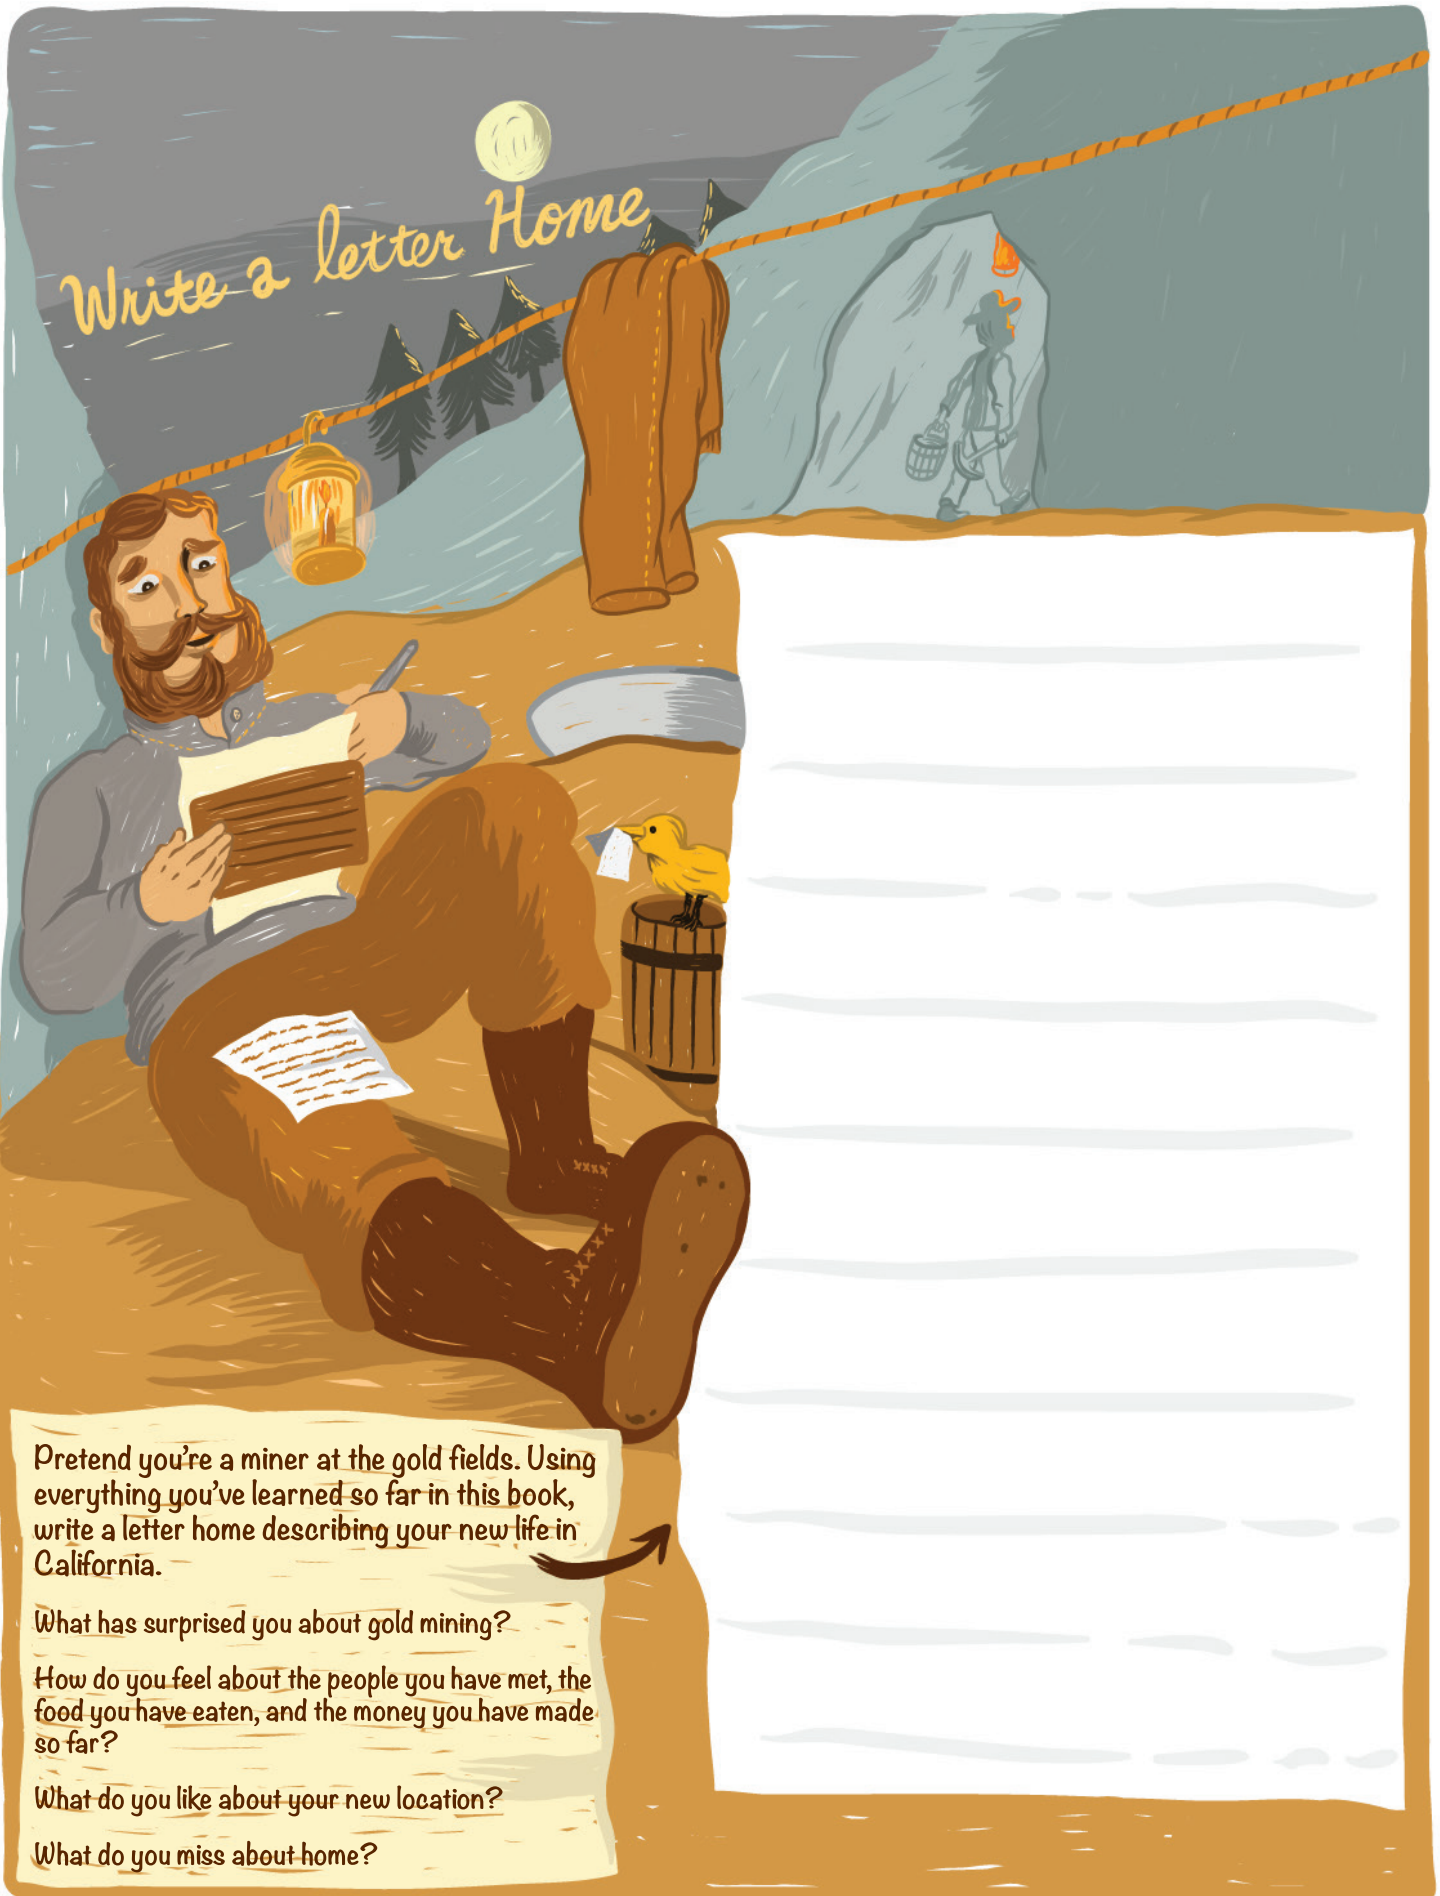 Write a letter Home
Pretend you're a miner at the gold fields. Using
everything you've learned so far in this book,
write a letter home describing your new life in
California.
What has surprised you about gold mining?
How do you feel about the people you have met, the
food you have eaten, and the money you have made
so far?
What do you like about your new location?
What do you miss about home?